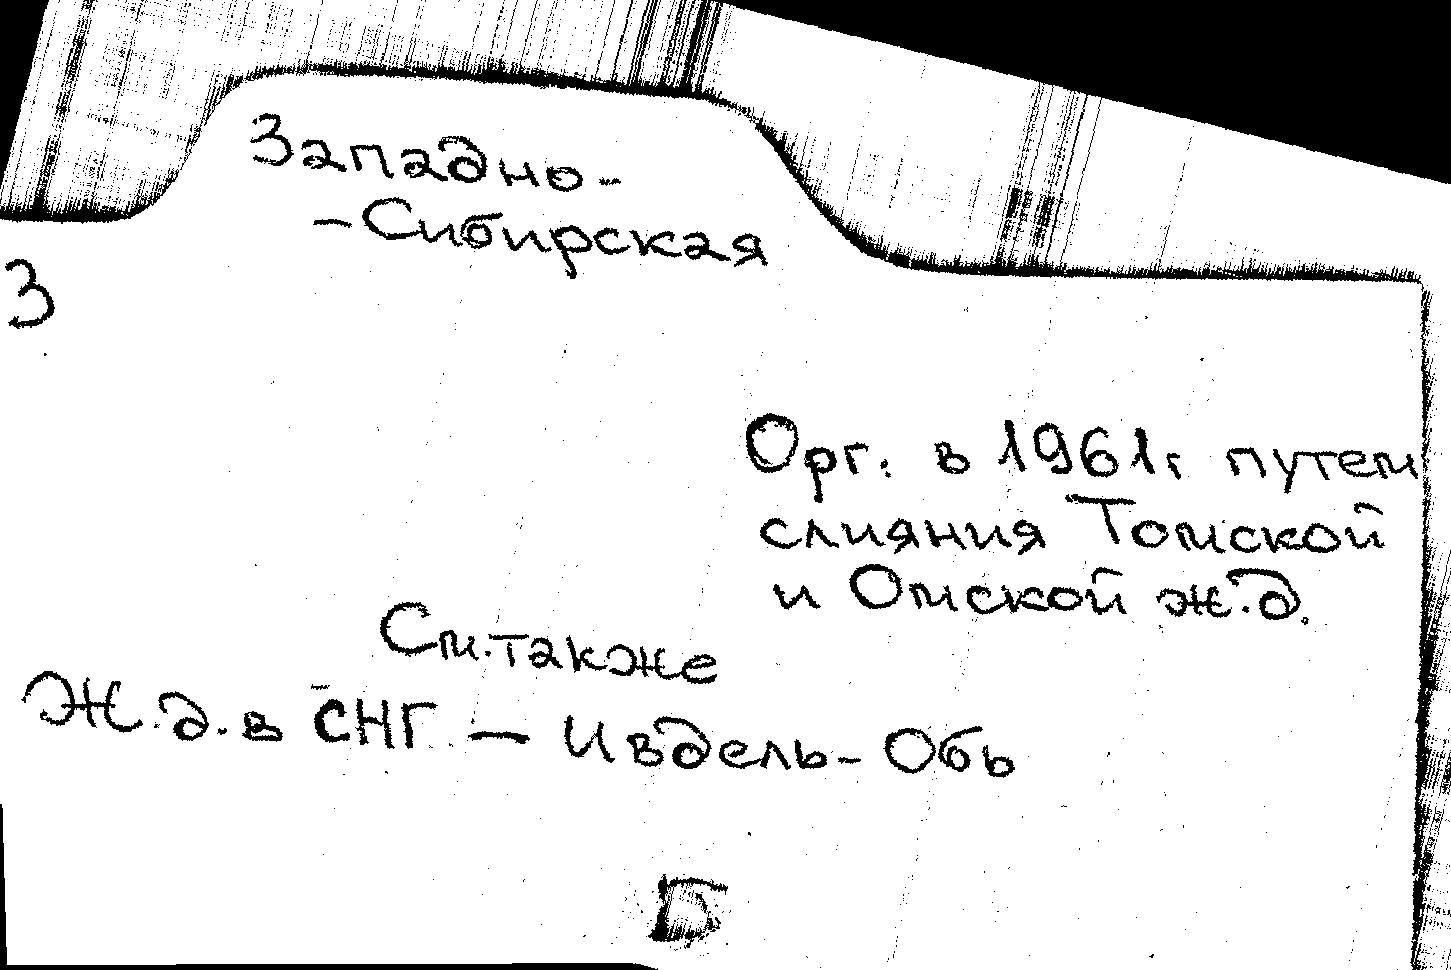 Западно-
-Сибирская
З
Орг. в 1961г путем
слияния Томской
и Омской ж.д.
См. также
Ж.д. в СНГ — Ивдель-Обь